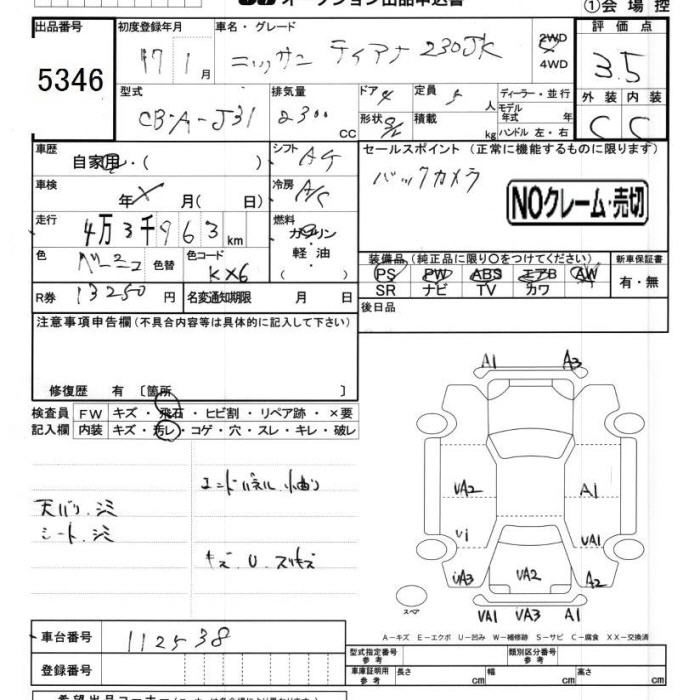 オークション出品申込書
①会場控
出品番号
5346
初度登録年月
17 1月
車名・グレード
ニッサン ティアナ 230JK
2WD
4WD
評価点
3.5
外装 内装
C C
型式
CBA-J31
排気量
2300 CC
ドア 4
形状
定員 5人
積載 kg
ディーラー・並行
モデル年式 年式
ハンドル 左・右
車歴
自家用・( )
シフト
AT
セールスポイント (正常に機能するものに限ります)
バックカメラ
NOクレーム・売切
車検
年 月( 日)
冷房
A/C
走行
4万3千963km
燃料
ガソリン
軽油
( )
色
ベージュ
色替
色コード
KX6
装備品(純正品に限り○をつけてください)
PS PW ABS エアB AW
SR ナビ TV カワ
新車保証書
有・無
R券 13250円
名変通知期限 月 日
後日品
注意事項申告欄(不具合内容等は具体的に記入して下さい)
修復歴 有 〔箇所 〕
検査員
記入欄
FW キズ・飛石・ヒビ割・リペア跡・×要
内装 キズ・汚レ・コゲ・穴・スレ・キレ・破レ
エンドパネル 小曲り
天バリ.シミ
シート.シミ
キズ.U.スリキズ
A1 A3
UA2 A1
U1 UA1
UA3 UA2 A2
スペア
UA1 UA3 A1
A－キズ E－エクボ U－凹み W－補修跡 S－サビ C－腐食 XX－交換済
車台番号
112538
登録番号
型式指定番号 参考
類別区分番号 参考
車庫証明用 参考
長さ cm 幅 cm 高さ cm
希望出品コーナー